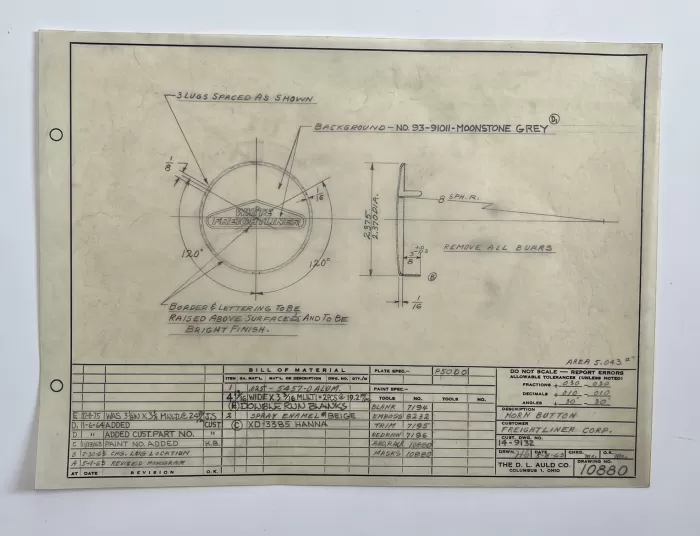 3 LUGS SPACED AS SHOWN
BACKGROUND - NO. 93-91011 - MOONSTONE GREY
D₁
1/8
1/16
WHITE
FREIGHTLINER
120°
120°
2.375
2.370 DIA.
8 SPH. R.
REMOVE ALL BURRS
3/8
B
1/16
BORDER & LETTERING TO BE
RAISED ABOVE SURFACE AND TO BE
BRIGHT FINISH.
AREA 5.043
BILL OF MATERIAL
ITEM QA. MAT'L. MAT'L OR DESCRIPTION DWG. NO. QT./
1 5457-O ALUM.
DOUBLE RUN BLANKS
2 SPRAY ENAMEL BEIGE
C XD-3385 HANNA
PLATE SPEC.- P5000
PAINT SPEC.-
TOOLS NO. TOOLS NO.
BLANK 7194
EMBOSS 8212
TRIM 7195
REDRAW 7196
10880
MASKS 10880
E WAS
D 11-6-64 ADDED CUST
D " ADDED CUST. PART NO. "
C PAINT NO. ADDED K.B.
B CHG. LUG LOCATION
A REVISED MONOGRAM
AT DATE REVISION O.K.
DO NOT SCALE - REPORT ERRORS
ALLOWABLE TOLERANCES (UNLESS NOTED)
FRACTIONS + .030 - .030
DECIMALS + .010 - .010
ANGLES + 30' - 30'
DESCRIPTION
HORN BUTTON
CUSTOMER
FREIGHTLINER CORP.
CUST. DWG. NO.
14-9132
DRWN. DATE CHKD. O.K.
THE D. L. AULD CO.
COLUMBUS 1, OHIO
DRAWING NO.
10880